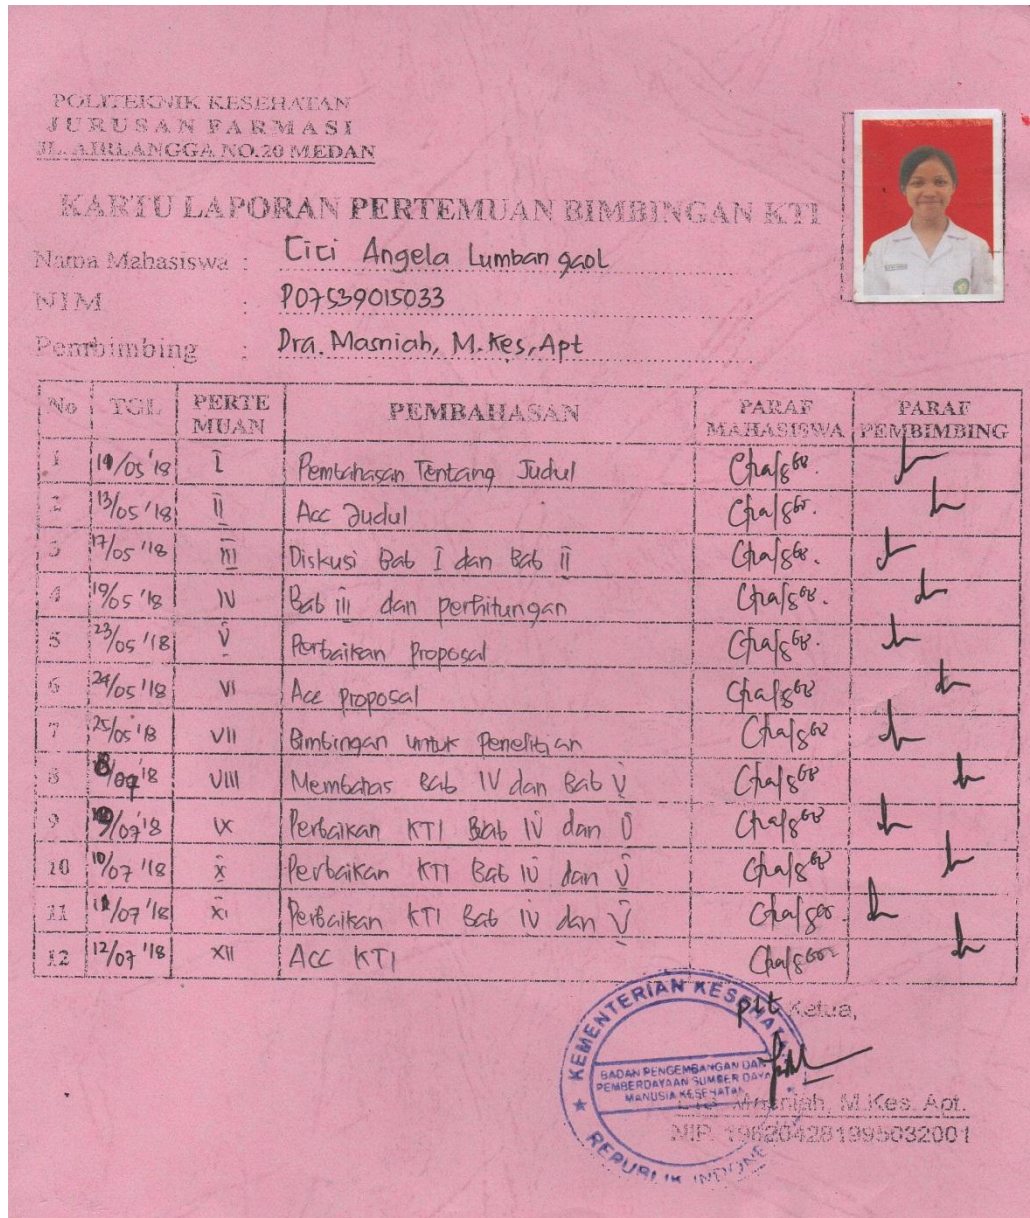 POLITEKNIK KESEHATAN
JURUSAN FARMASI
JL. AIRLANGGA NO.20 MEDAN
KARTU LAPORAN PERTEMUAN BIMBINGAN KTI
Nama Mahasiswa : Cici Angela Lumban gaol
NIM : P07539015033
Pembimbing : Dra. Masniah, M.Kes, Apt
No TGL PERTEMUAN PEMBAHASAN PARAF MAHASISWA PARAF PEMBIMBING
1 /05 '18 I Pembahasan Tentang Judul
2 13/05 '18 II Acc Judul
3 17/05 '18 III Diskusi Bab I dan Bab II
4 19/05 '18 IV Bab III dan perhitungan
5 23/05 '18 V Perbaikan Proposal
6 24/05 '18 VI Acc proposal
7 25/05 '18 VII Bimbingan untuk Penelitian
8 '18 VIII Membahas Bab IV dan Bab V
9 /07 '18 IX Perbaikan KTI Bab IV dan V
10 10/07 '18 X Perbaikan KTI Bab IV dan V
11 /07 '18 XI Perbaikan KTI Bab IV dan V
12 12/07 '18 XII Acc KTI
plt Ketua,
KEMENTERIAN KESEHATAN
BADAN PENGEMBANGAN DAN
PEMBERDAYAAN SUMBER DAYA
MANUSIA KESEHATAN
REPUBLIK INDONE
Masniah, M.Kes. Apt.
NIP. 196204281995032001